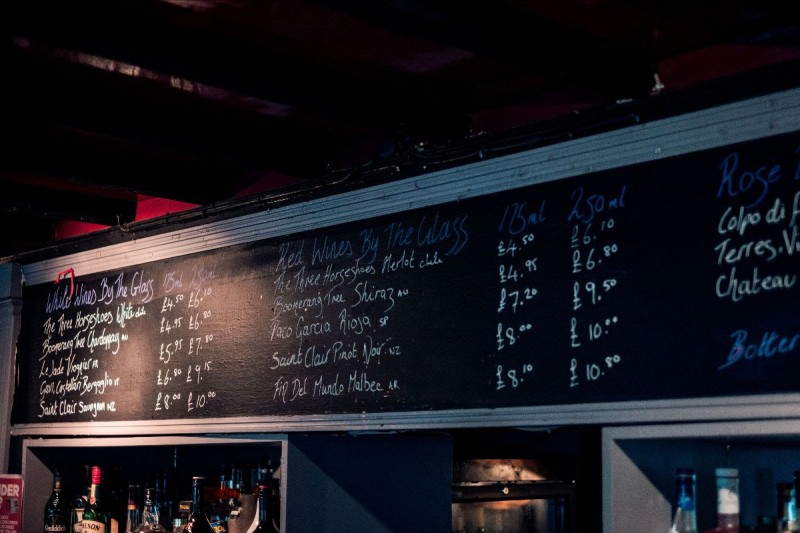 White Wines By The Glass 175ml 250ml
The Three Horseshoes White £4.50 £6.10
Boomerang Tree Chardonnay AU £4.95 £6.80
Le Jade Viognier FR £5.95 £7.80
Gavi Castellari Bergaglio IT £6.80 £9.15
Saint Clair Sauvignon NZ £8.00 £10.00
Red Wines By The Glass 175ml 250ml
The Three Horseshoes Merlot £4.50 £6.10
Boomerang Tree Shiraz AU £4.95 £6.80
Paco Garcia Rioja SP £7.20 £9.50
Saint Clair Pinot Noir NZ £8.00 £10.00
Fin Del Mundo Malbec AR £8.10 £10.80
Rose
Colpo di
Terres
Chateau